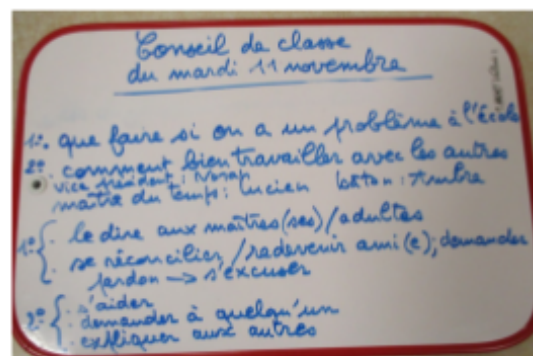 Conseil de classe
du mardi 11 novembre
1°. que faire si on a un problème à l'école
2°. comment bien travailler avec les autres
vice président :
maître du temps : Lucien bâton : Ambre
1° { . le dire aux maîtres(ses)/adultes
. se réconcilier/redevenir ami(e); demander
pardon → s'excuser
2° { . s'aider
. demander à quelqu'un
. expliquer aux autres